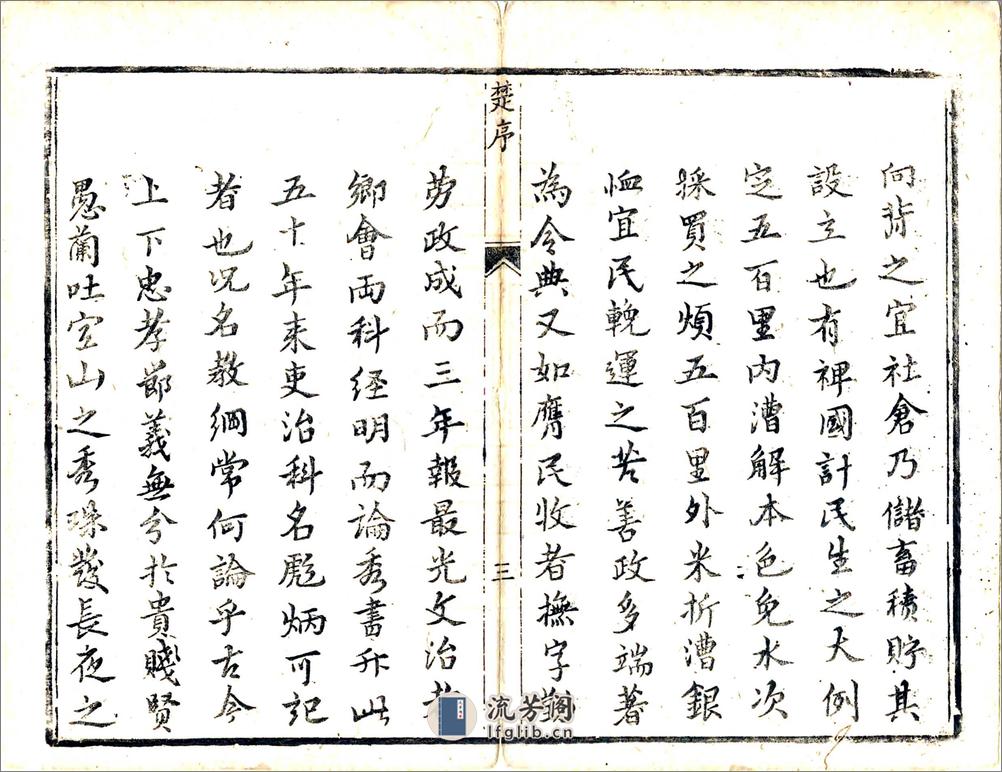 向背之宜社倉乃儲畜積貯其
設立也有裨國計民生之大例
定五百里内漕解本色免水次
採買之煩五百里外米折漕銀
恤宜民輓運之苦善政多端著
為令典又如膺民收者撫字
楚序
三
勞政成而三年報最光文治者
鄉會両科經明而論秀書升此
五十年来吏治科名彪炳可記
者也况名教綱常何論乎古今
上下忠孝節義無分扵貴賤賢
愚蘭吐空山之秀珠發長夜之
流芳阁
lfglib.cn